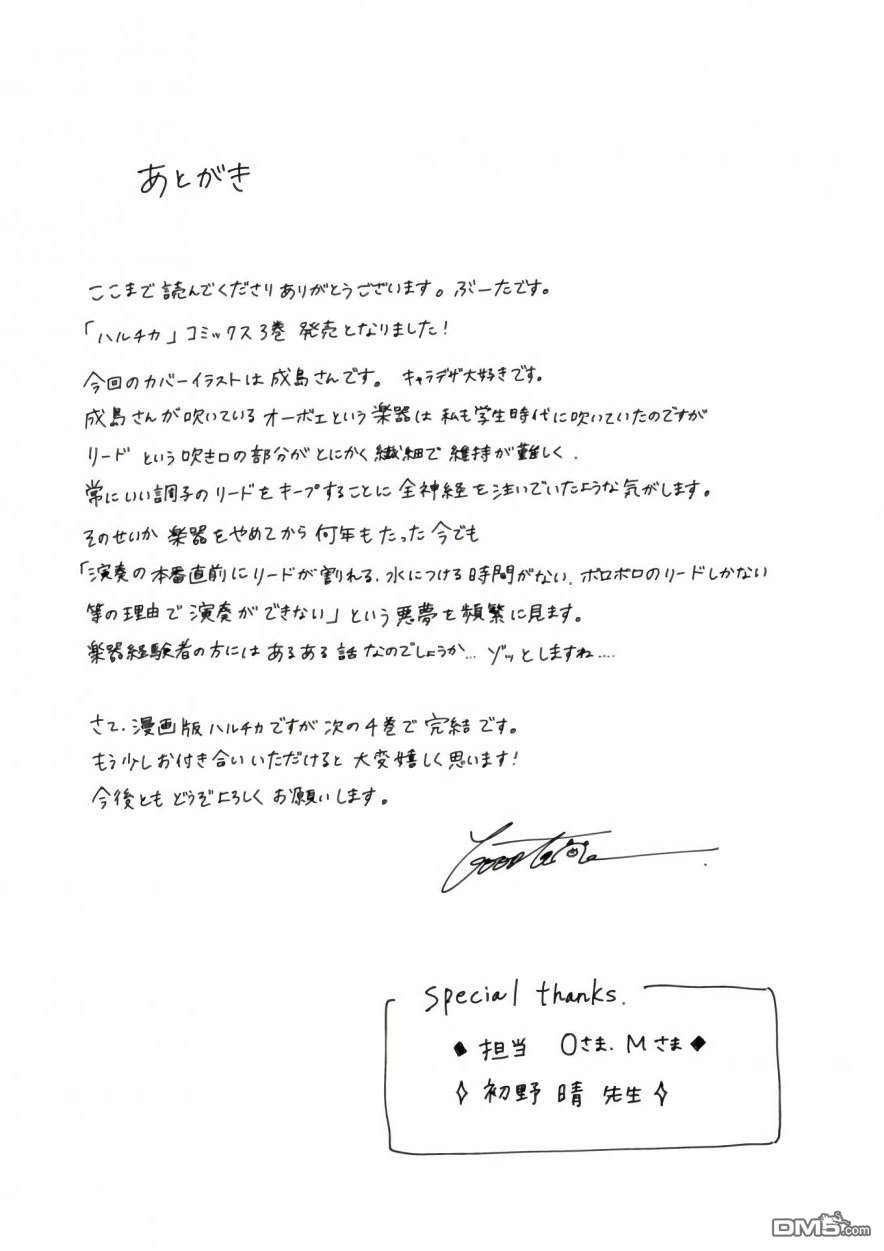 あとがき
ここまで読んでくださりありがとうございます。ぶーたです。
「ハルチカ」コミックス3巻 発売となりました!
今回のカバーイラストは成島さんです。 キャラデザ大好きです。
成島さんが吹いているオーボエという楽器は私も学生時代に吹いていたのですが
リードという吹き口の部分がとにかく繊細で維持が難しく、
常にいい調子のリードをキープすることに全神経を注いでいたような気がします。
そのせいか楽器をやめてから何年もたった今でも
「演奏の本番直前にリードが割れる、水につける時間がない、ボロボロのリードしかない
等の理由で演奏ができない」という悪夢を頻繁に見ます。
楽器経験者の方にはあるある話なのでしょうか… ゾッとしますね….
さて、漫画版ハルチカですが次の4巻で完結です。
もう少しお付き合いいただけると大変嬉しく思います!
今後ともどうぞよろしくお願いします。
Special thanks.
◆担当 Oさま、Mさま◆
✧初野 晴 先生✧
DM5.com